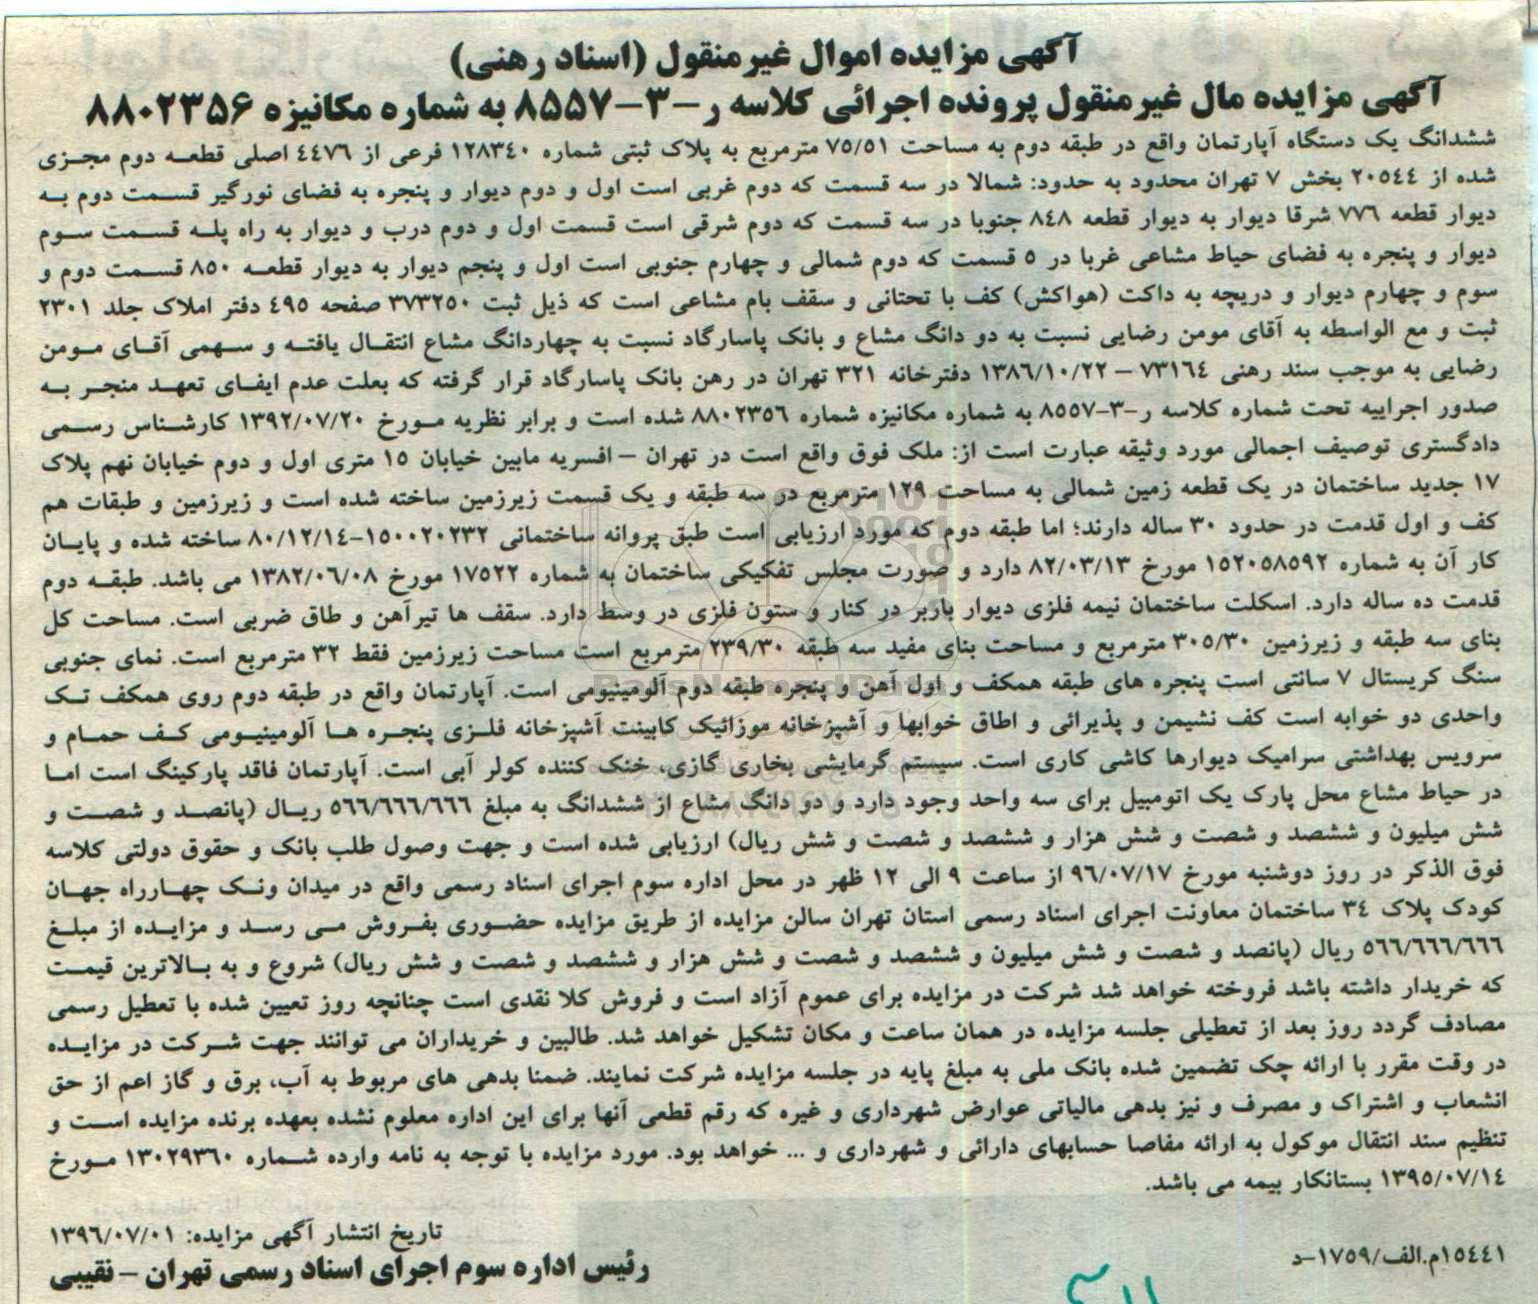 آگهی مزایده اموال غیرمنقول (اسناد رهنی)
آگهی مزایده مال غیرمنقول پرونده اجرائی کلاسه ر-۳-۸۵۵۷ به شماره مکانیزه ۸۸۰۲۳۵۶
ششدانگ یک دستگاه آپارتمان واقع در طبقه دوم به مساحت ۷۵/۵۱ مترمربع به پلاک ثبتی شماره ۱۲۸۳۴۰ فرعی از ۴۴۷۶ اصلی قطعه دوم مجزی
شده از ۲۰۵۴۴ بخش ۷ تهران محدود به حدود: شمالا در سه قسمت که دوم غربی است اول و دوم دیوار و پنجره به فضای نورگیر قسمت دوم به
دیوار قطعه ۷۷۶ شرقا دیوار به دیوار قطعه ۸۴۸ جنوبا در سه قسمت که دوم شرقی است قسمت اول و دوم درب و دیوار به راه پله قسمت سوم
دیوار و پنجره به فضای حیاط مشاعی غربا در ۵ قسمت که دوم شمالی و چهارم جنوبی است اول و پنجم دیوار به دیوار قطعه ۸۵۰ قسمت دوم و
سوم و چهارم دیوار و دریچه به داکت (هواکش) کف با تحتانی و سقف بام مشاعی است که ذیل ثبت ۳۷۳۲۵۰ صفحه ۴۹۵ دفتر املاک جلد ۲۳۰۱
ثبت و مع الواسطه به آقای مومن رضایی نسبت به دو دانگ مشاع و بانک پاسارگاد نسبت به چهاردانگ مشاع انتقال یافته و سهمی آقای مومن
رضایی به موجب سند رهنی ۷۳۱۶۴ – ۱۳۸۶/۱۰/۲۲ دفترخانه ۳۲۱ تهران در رهن بانک پاسارگاد قرار گرفته که بعلت عدم ایفای تعهد منجر به
صدور اجراییه تحت شماره کلاسه ر-۳-۸۵۵۷ به شماره مکانیزه شماره ۸۸۰۲۳۵۶ شده است و برابر نظریه مورخ ۱۳۹۲/۰۷/۲۰ کارشناس رسمی
دادگستری توصیف اجمالی مورد وثیقه عبارت است از: ملک فوق واقع است در تهران – افسریه مابین خیابان ۱۵ متری اول و دوم خیابان نهم پلاک
۱۷ جدید ساختمان در یک قطعه زمین شمالی به مساحت ۱۲۹ مترمربع در سه طبقه و یک قسمت زیرزمین ساخته شده است و زیرزمین و طبقات هم
کف و اول قدمت در حدود ۳۰ ساله دارند؛ اما طبقه دوم که مورد ارزیابی است طبق پروانه ساختمانی ۱۵۰۰۲۰۲۳۲-۸۰/۱۲/۱۴ ساخته شده و پایان
کار آن به شماره ۱۵۲۰۵۸۵۹۲ مورخ ۸۲/۰۳/۱۳ دارد و صورت مجلس تفکیکی ساختمان به شماره ۱۷۵۲۲ مورخ ۱۳۸۲/۰۶/۰۸ می باشد. طبقه دوم
قدمت ده ساله دارد. اسکلت ساختمان نیمه فلزی دیوار باربر در کنار و ستون فلزی در وسط دارد. سقف ها تیرآهن و طاق ضربی است. مساحت کل
بنای سه طبقه و زیرزمین ۳۰۵/۳۰ مترمربع و مساحت بنای مفید سه طبقه ۲۳۹/۳۰ مترمربع است مساحت زیرزمین فقط ۳۲ مترمربع است. نمای جنوبی
سنگ کریستال ۷ سانتی است پنجره های طبقه همکف و اول آهن و پنجره طبقه دوم آلومینیومی است. آپارتمان واقع در طبقه دوم روی همکف تک
واحدی دو خوابه است کف نشیمن و پذیرائی و اطاق خوابها و آشپزخانه موزائیک کابینت آشپزخانه فلزی پنجره ها آلومینیومی کف حمام و
سرویس بهداشتی سرامیک دیوارها کاشی کاری است. سیستم گرمایشی بخاری گازی، خنک کننده کولر آبی است. آپارتمان فاقد پارکینگ است اما
در حیاط مشاع محل پارک یک اتومبیل برای سه واحد وجود دارد و دو دانگ مشاع از ششدانگ به مبلغ ۵۶۶/۶۶۶/۶۶۶ ریال (پانصد و شصت و
شش میلیون و ششصد و شصت و شش هزار و ششصد و شصت و شش ریال) ارزیابی شده است و جهت وصول طلب بانک و حقوق دولتی کلاسه
فوق الذکر در روز دوشنبه مورخ ۹۶/۰۷/۱۷ از ساعت ۹ الی ۱۲ ظهر در محل اداره سوم اجرای اسناد رسمی واقع در میدان ونک چهارراه جهان
کودک پلاک ۳۴ ساختمان معاونت اجرای اسناد رسمی استان تهران سالن مزایده از طریق مزایده حضوری بفروش می رسد و مزایده از مبلغ
۵۶۶/۶۶۶/۶۶۶ ریال (پانصد و شصت و شش میلیون و ششصد و شصت و شش هزار و ششصد و شصت و شش ریال) شروع و به بالاترین قیمت
که خریدار داشته باشد فروخته خواهد شد شرکت در مزایده برای عموم آزاد است و فروش کلا نقدی است چنانچه روز تعیین شده با تعطیل رسمی
مصادف گردد روز بعد از تعطیلی جلسه مزایده در همان ساعت و مکان تشکیل خواهد شد. طالبین و خریداران می توانند جهت شرکت در مزایده
در وقت مقرر با ارائه چک تضمین شده بانک ملی به مبلغ پایه در جلسه مزایده شرکت نمایند. ضمنا بدهی های مربوط به آب، برق و گاز اعم از حق
انشعاب و اشتراک و مصرف و نیز بدهی مالیاتی عوارض شهرداری و غیره که رقم قطعی آنها برای این اداره معلوم نشده بعهده برنده مزایده است و
تنظیم سند انتقال موکول به ارائه مفاصا حسابهای دارائی و شهرداری و ... خواهد بود. مورد مزایده با توجه به نامه وارده شماره ۱۳۰۲۹۳۶۰ مورخ
۱۳۹۵/۰۷/۱۴ بستانکار بیمه می باشد.
تاریخ انتشار آگهی مزایده: ۱۳۹۶/۰۷/۰۱
۱۵۴۴۱م.الف/۱۷۵۹-د
رئیس اداره سوم اجرای اسناد رسمی تهران – نقیبی